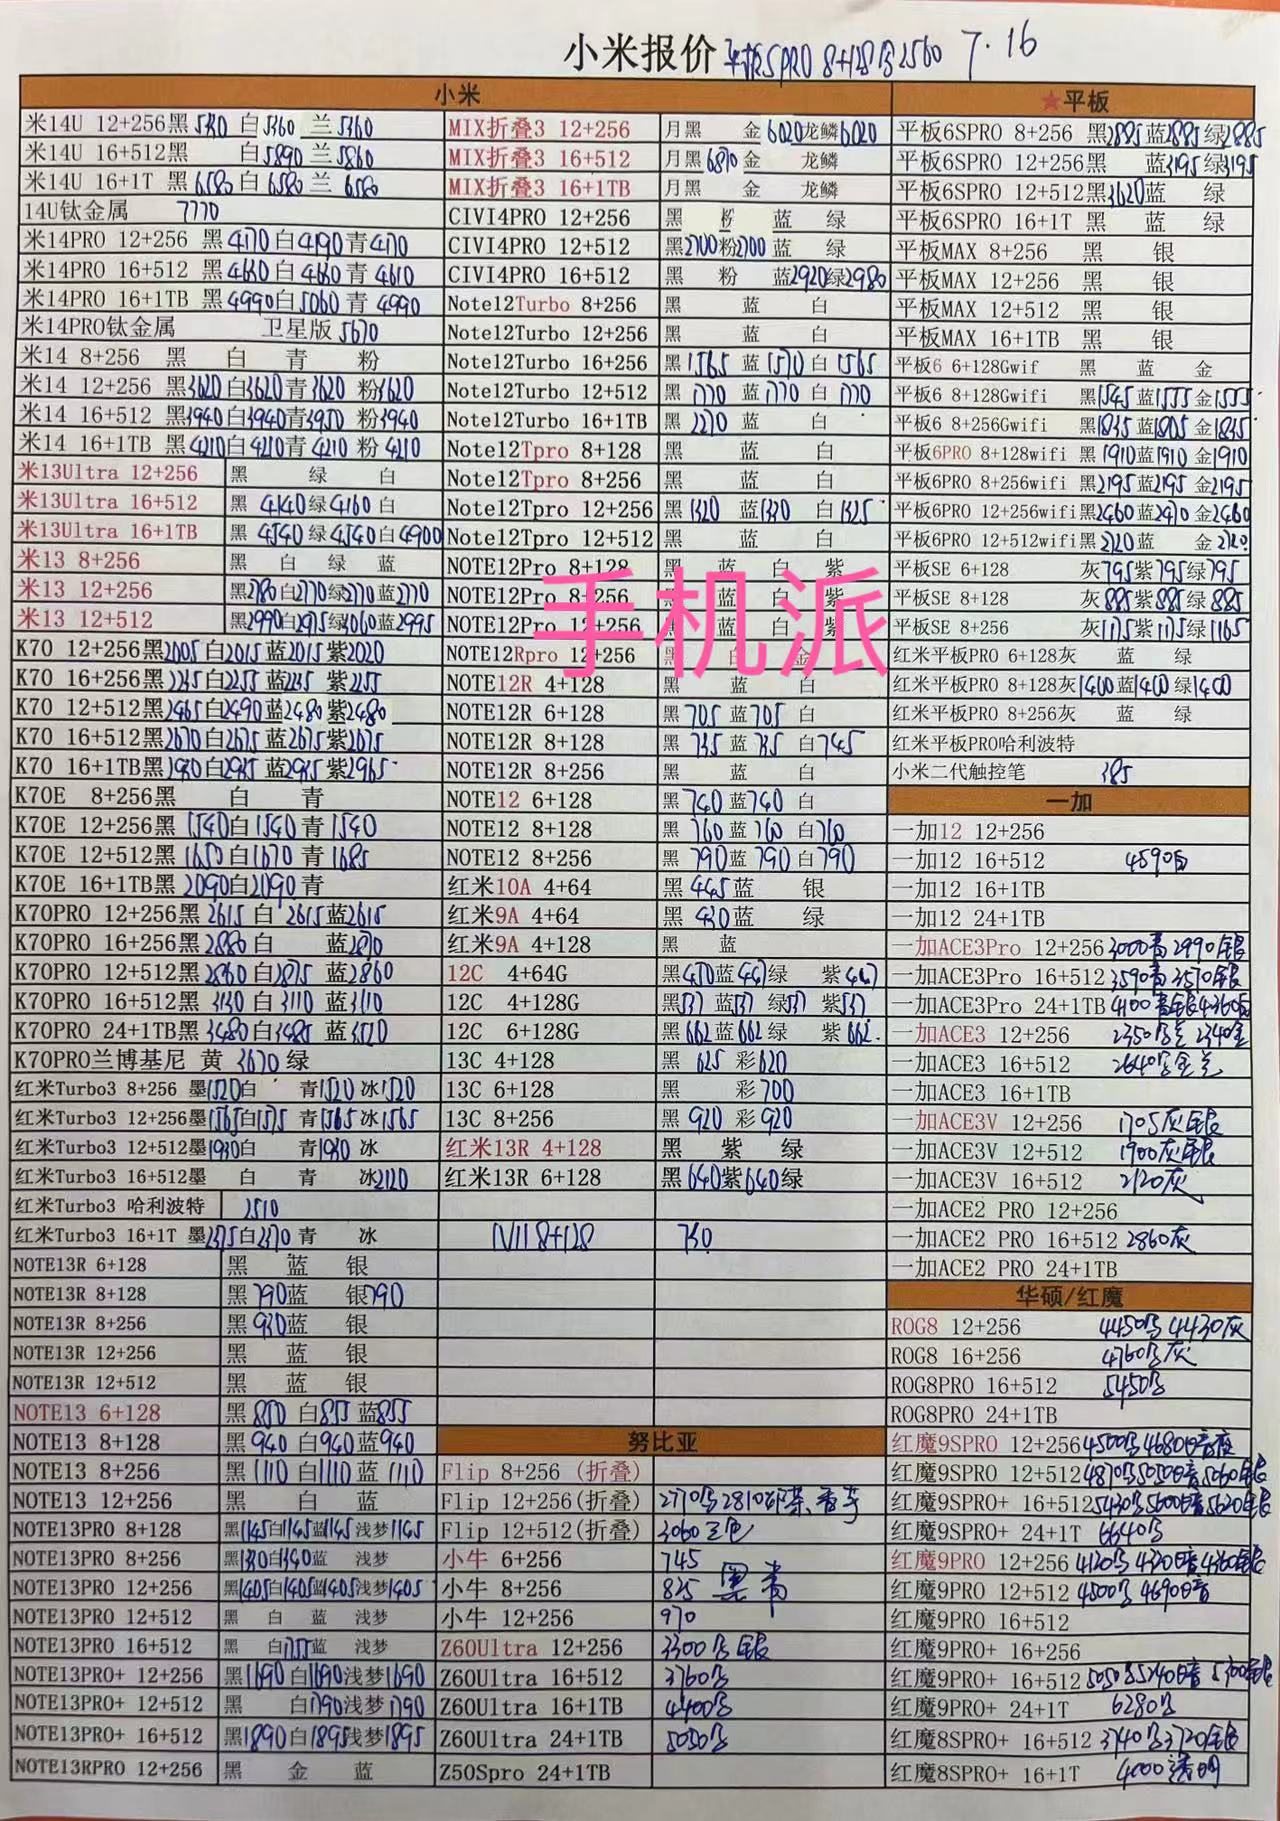 小米报价 平板5PRO 8+128 2560 7.16
小米
米14U 12+256黑 白5360 兰5360
米14U 16+512黑 白5890 兰5860
米14U 16+1T 黑6580 白6580 兰6580
14U钛金属 7770
米14PRO 12+256 黑4170白4190青4170
米14PRO 16+512 黑4630白4630青4610
米14PRO 16+1TB 黑4990白5060青4990
米14PRO钛金属 卫星版5670
米14 8+256 黑 白 青 粉
米14 12+256 黑3620白3620青3620 粉3620
米14 16+512 黑3940白3940青3950 粉3940
米14 16+1TB 黑4210白4210青4210 粉4210
米13Ultra 12+256 黑 绿 白
米13Ultra 16+512 黑 4140绿4160白
米13Ultra 16+1TB 黑 4540绿4540白4900
米13 8+256 黑 白 绿 蓝
米13 12+256 黑2780白2770绿2770蓝2770
米13 12+512 黑2990白2975绿3060蓝2995
K70 12+256黑2005白2015蓝2015紫2020
K70 16+256黑2245白2255蓝2245紫2255
K70 12+512黑2465白2490蓝2480紫2480
K70 16+512黑2670白2675蓝2675紫2675
K70 16+1TB黑 白 蓝 紫2965
K70E 8+256黑 白 青
K70E 12+256黑1540白1540青1540
K70E 12+512黑1650白1670青1685
K70E 16+1TB黑2090白2090青
K70PRO 12+256黑2615白2615蓝2615
K70PRO 16+256黑2880白 蓝2870
K70PRO 12+512黑2860白2875蓝2860
K70PRO 16+512黑3130白3110蓝3110
K70PRO 24+1TB黑3480白3485蓝
K70PRO兰博基尼 黄 3670绿
红米Turbo3 8+256 墨1520白 青1520冰1520
红米Turbo3 12+256墨1565白1575青1565冰1565
红米Turbo3 12+512墨1930白 青1930冰
红米Turbo3 16+512墨 白 青 冰2120
红米Turbo3 哈利波特 2510
红米Turbo3 16+1T 墨2375白2370青 冰
NOTE13R 6+128 黑 蓝 银
NOTE13R 8+128 黑790蓝 银790
NOTE13R 8+256 黑930蓝 银
NOTE13R 12+256 黑 蓝 银
NOTE13R 12+512 黑 蓝 银
NOTE13 6+128 黑850 白855蓝855
NOTE13 8+128 黑940 白940蓝940
NOTE13 8+256 黑1110白1110蓝1110
NOTE13 12+256 黑 白 蓝
NOTE13PRO 8+128 黑1145白1145蓝1145浅梦1145
NOTE13PRO 8+256 黑1330白1340蓝 浅梦
NOTE13PRO 12+256 黑1405白1405蓝1405浅梦1405
NOTE13PRO 12+512 黑 白 蓝 浅梦
NOTE13PRO 16+512 黑 白1755蓝 浅梦
NOTE13PRO+ 12+256 黑1690白1690浅梦1690
NOTE13PRO+ 12+512 黑 白1790浅梦1790
NOTE13PRO+ 16+512 黑1890白1895浅梦1895
NOTE13RPRO 12+256 黑 金 蓝
MIX折叠3 12+256 月黑 金6020龙鳞6020
MIX折叠3 16+512 月黑6870金 龙鳞
MIX折叠3 16+1TB 月黑 金 龙鳞
CIVI4PRO 12+256 黑 粉 蓝 绿
CIVI4PRO 12+512 黑2700粉2700蓝 绿
CIVI4PRO 16+512 黑 粉 蓝2920绿2980
Note12Turbo 8+256 黑 蓝 白
Note12Turbo 12+256 黑 蓝 白
Note12Turbo 16+256 黑1565 蓝1570白1565
Note12Turbo 12+512 黑1770 蓝1770 白1770
Note12Turbo 16+1TB 黑2270 蓝 白
Note12Tpro 8+128 黑 蓝 白
Note12Tpro 8+256 黑 蓝 白
Note12Tpro 12+256 黑1320 蓝1330 白1325
Note12Tpro 12+512 黑 蓝 白
NOTE12Pro 8+128 黑 蓝 白 紫
NOTE12Pro 8+256 黑 蓝 白 紫
NOTE12Pro 12+256 黑 蓝 白 紫
手机派
NOTE12Rpro 12+256 黑 白 金
NOTE12R 4+128 黑 蓝 白
NOTE12R 6+128 黑705蓝705 白
NOTE12R 8+128 黑735蓝735 白745
NOTE12R 8+256 黑 蓝 白
NOTE12 6+128 黑740蓝740 白
NOTE12 8+128 黑760蓝760 白760
NOTE12 8+256 黑790蓝790白790
红米10A 4+64 黑445蓝 银
红米9A 4+64 黑430蓝 绿
红米9A 4+128 黑 蓝
12C 4+64G 黑450蓝447绿 紫447
12C 4+128G 黑537蓝537绿537紫537
12C 6+128G 黑662蓝662绿 紫662
13C 4+128 黑 625 彩620
13C 6+128 黑 彩700
13C 8+256 黑920 彩920
红米13R 4+128 黑 紫 绿
红米13R 6+128 黑640紫640绿
N11 8+128 730
努比亚
Flip 8+256 (折叠)
Flip 12+256(折叠)
Flip 12+512(折叠) 3060三色
小牛 6+256 745
小牛 8+256 825 黑 青
小牛 12+256 970
Z60Ultra 12+256 3300 银
Z60Ultra 16+512 3760
Z60Ultra 16+1TB 4400
Z60Ultra 24+1TB 5050
Z50Spro 24+1TB
★平板
平板6SPRO 8+256 黑2885蓝2885绿2885
平板6SPRO 12+256黑 蓝3195绿3195
平板6SPRO 12+512黑3620蓝 绿
平板6SPRO 16+1T 黑 蓝 绿
平板MAX 8+256 黑 银
平板MAX 12+256 黑 银
平板MAX 12+512 黑 银
平板MAX 16+1TB 黑 银
平板6 6+128Gwif 黑 蓝 金
平板6 8+128Gwifi 黑1545蓝1555金1555
平板6 8+256Gwifi 黑1835蓝1805金1835
平板6PRO 8+128wifi 黑1910蓝1910金1910
平板6PRO 8+256wifi 黑2195蓝2195金2195
平板6PRO 12+256wifi黑2460蓝2470金2460
平板6PRO 12+512wifi黑 蓝 金
平板SE 6+128 灰795紫795绿795
平板SE 8+128 灰885紫885绿885
平板SE 8+256 灰1175紫1175绿1165
红米平板PRO 6+128灰 蓝 绿
红米平板PRO 8+128灰1400蓝1400绿1400
红米平板PRO 8+256灰 蓝 绿
红米平板PRO哈利波特
小米二代触控笔 385
一加
一加12 12+256
一加12 16+512 4590白
一加12 16+1TB
一加12 24+1TB
一加ACE3Pro 12+256 3000青 2990银
一加ACE3Pro 16+512 3590青 3570银
一加ACE3Pro 24+1TB 4100青银4360白
一加ACE3 12+256 2350 2340金
一加ACE3 16+512 2640
一加ACE3 16+1TB
一加ACE3V 12+256 1705灰银
一加ACE3V 12+512 1900灰银
一加ACE3V 16+512 2120灰
一加ACE2 PRO 12+256
一加ACE2 PRO 16+512 2860灰
一加ACE2 PRO 24+1TB
华硕/红魔
ROG8 12+256 4450 4430灰
ROG8 16+256 4760 灰
ROG8PRO 16+512 5450
ROG8PRO 24+1TB
红魔9SPRO 12+256 4500 4680
红魔9SPRO 12+512 4870 5050 5060银
红魔9SPRO+ 16+512 5430 5600 5620银
红魔9SPRO+ 24+1T 6640
红魔9PRO 12+256 4120 4320 4360银
红魔9PRO 12+512 4500 4690
红魔9PRO 16+512
红魔9PRO+ 16+256
红魔9PRO+ 16+512 5050 5240 5300银
红魔9PRO+ 24+1T 6280
红魔8SPRO+ 16+512 3740 3720银
红魔8SPRO+ 16+1T 4000透明